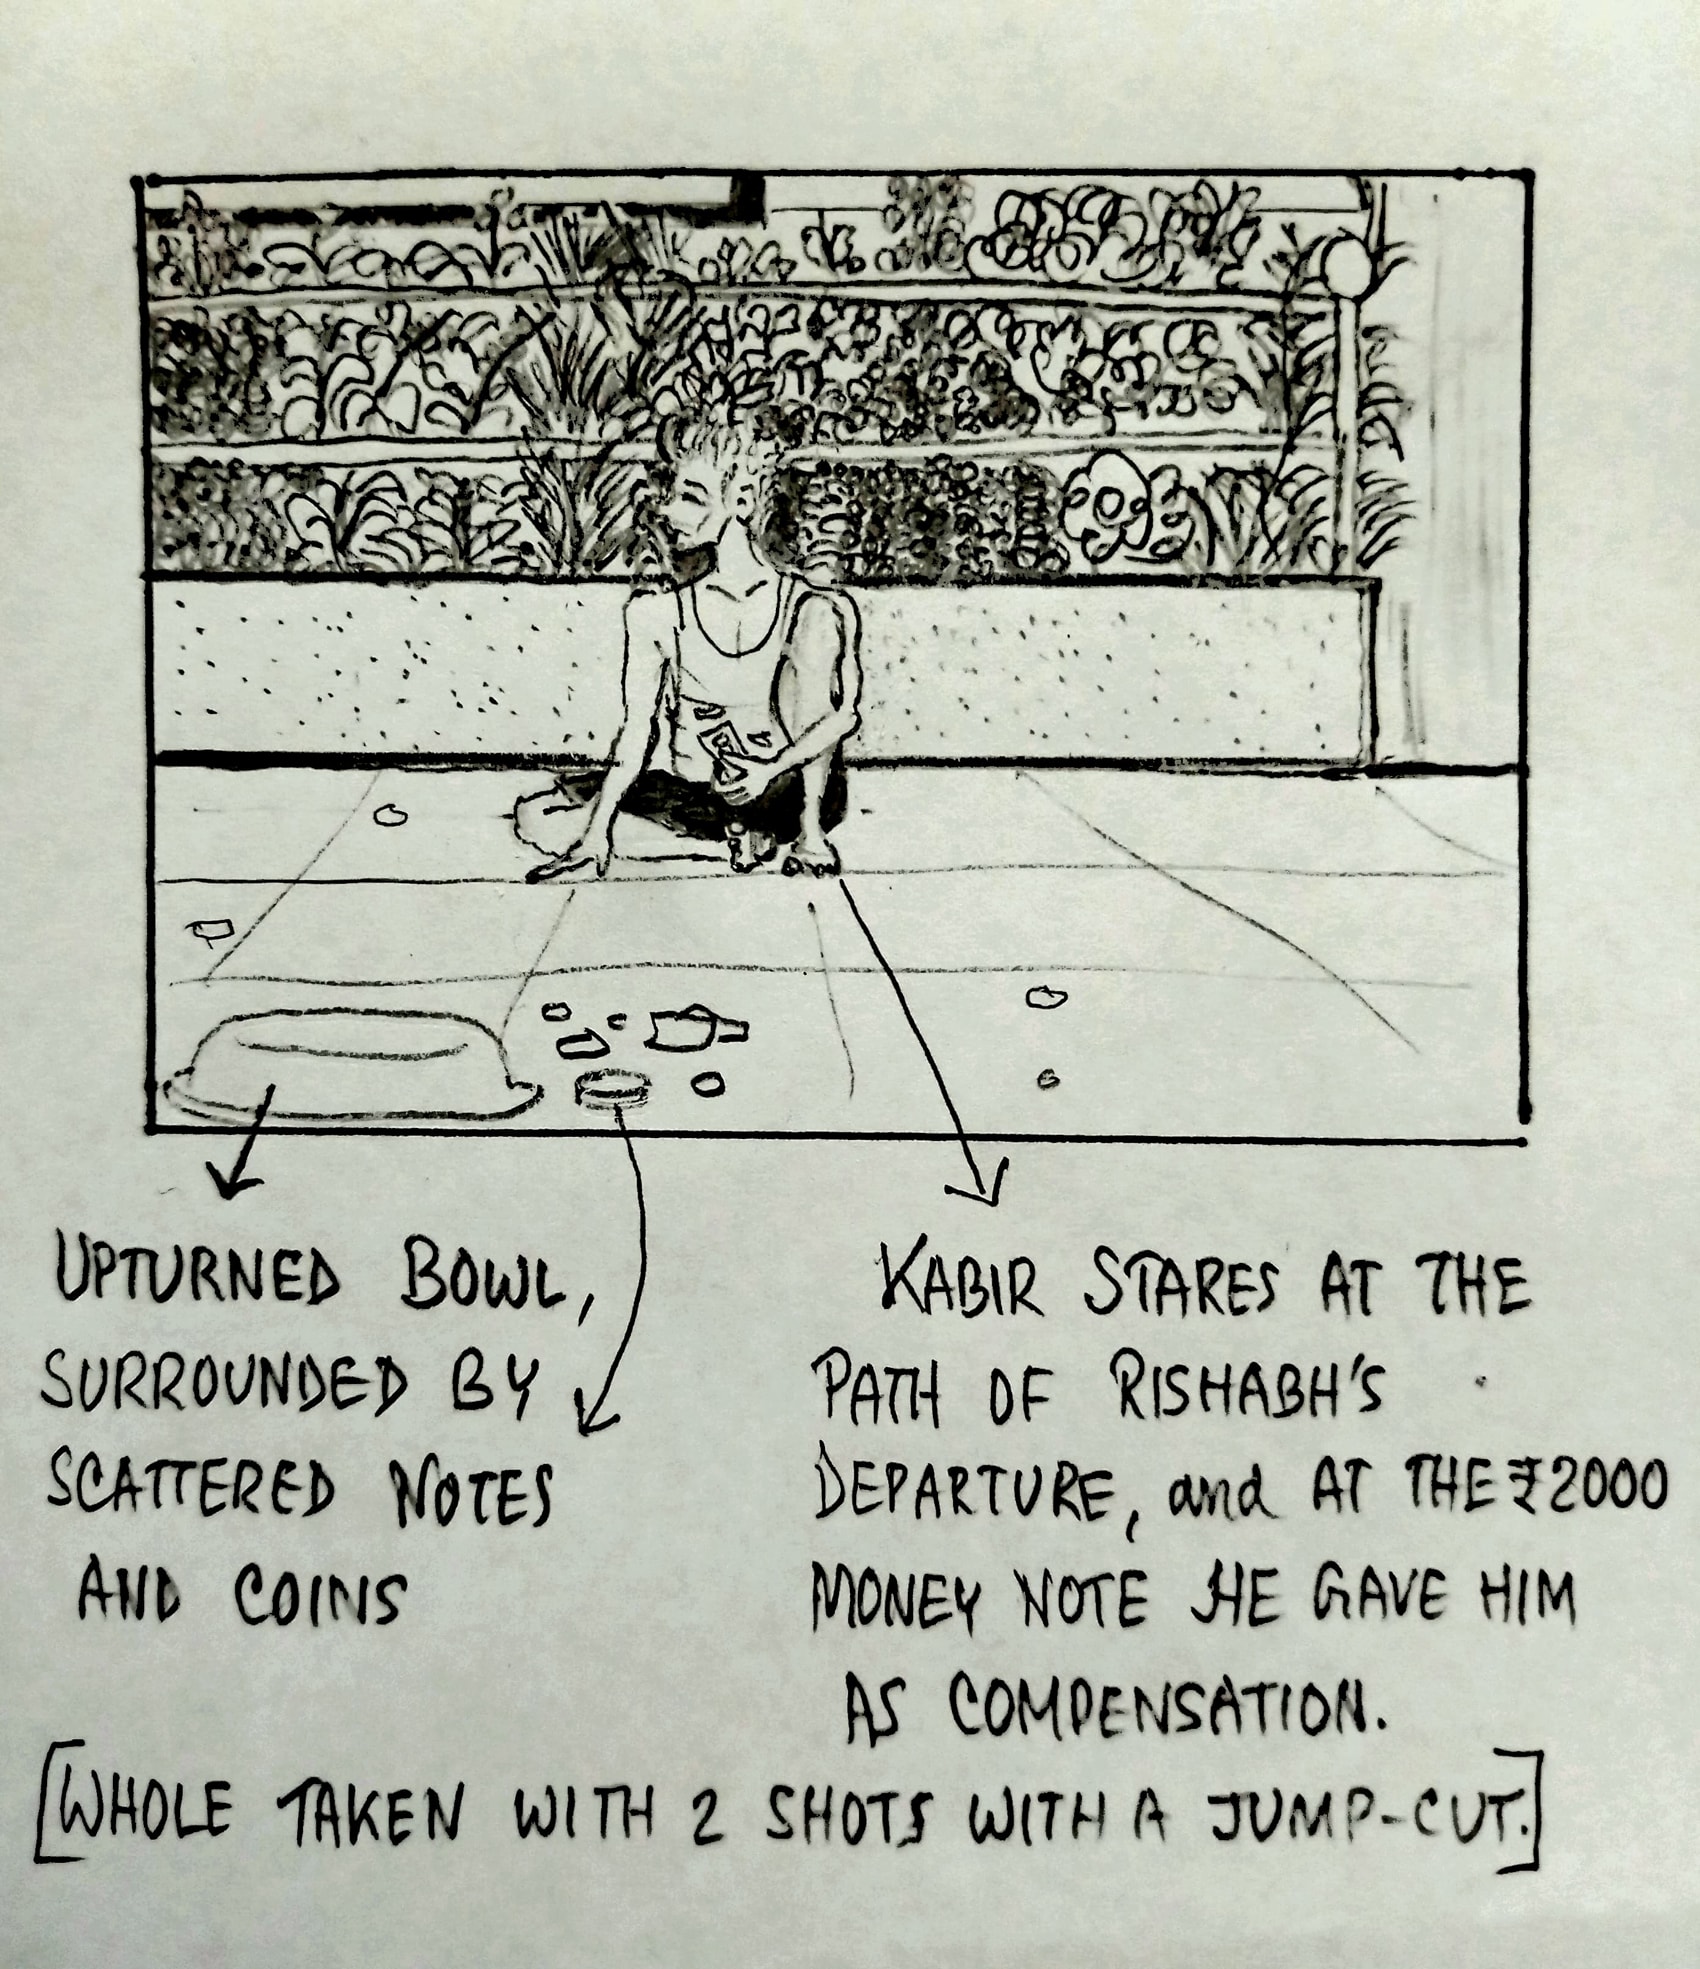 UPTURNED BOWL,
SURROUNDED BY
SCATTERED NOTES
AND COINS
KABIR STARES AT THE
PATH OF RISHABH'S
DEPARTURE, and AT THE ₹2000
MONEY NOTE HE GAVE HIM
AS COMPENSATION.
[WHOLE TAKEN WITH 2 SHOTS WITH A JUMP-CUT.]